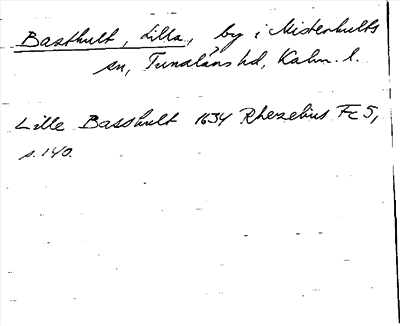 Basthult, Lilla, by i Misterhults
sn, Tunaläns hd, Kalm. l.
Lille Basshult 1634 Rhezelius Fc 5,
s. 140.